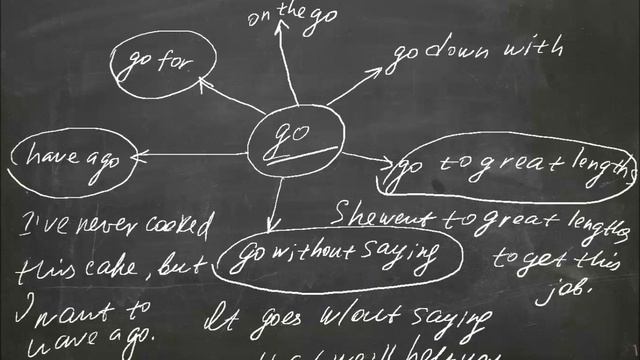 on the go
go for
go down with
go
have a go
go to great lengths
I've never cooked
this cake, but
I want to
have a go.
She went to great lengths
to get this
job.
go without saying
It goes w/out saying